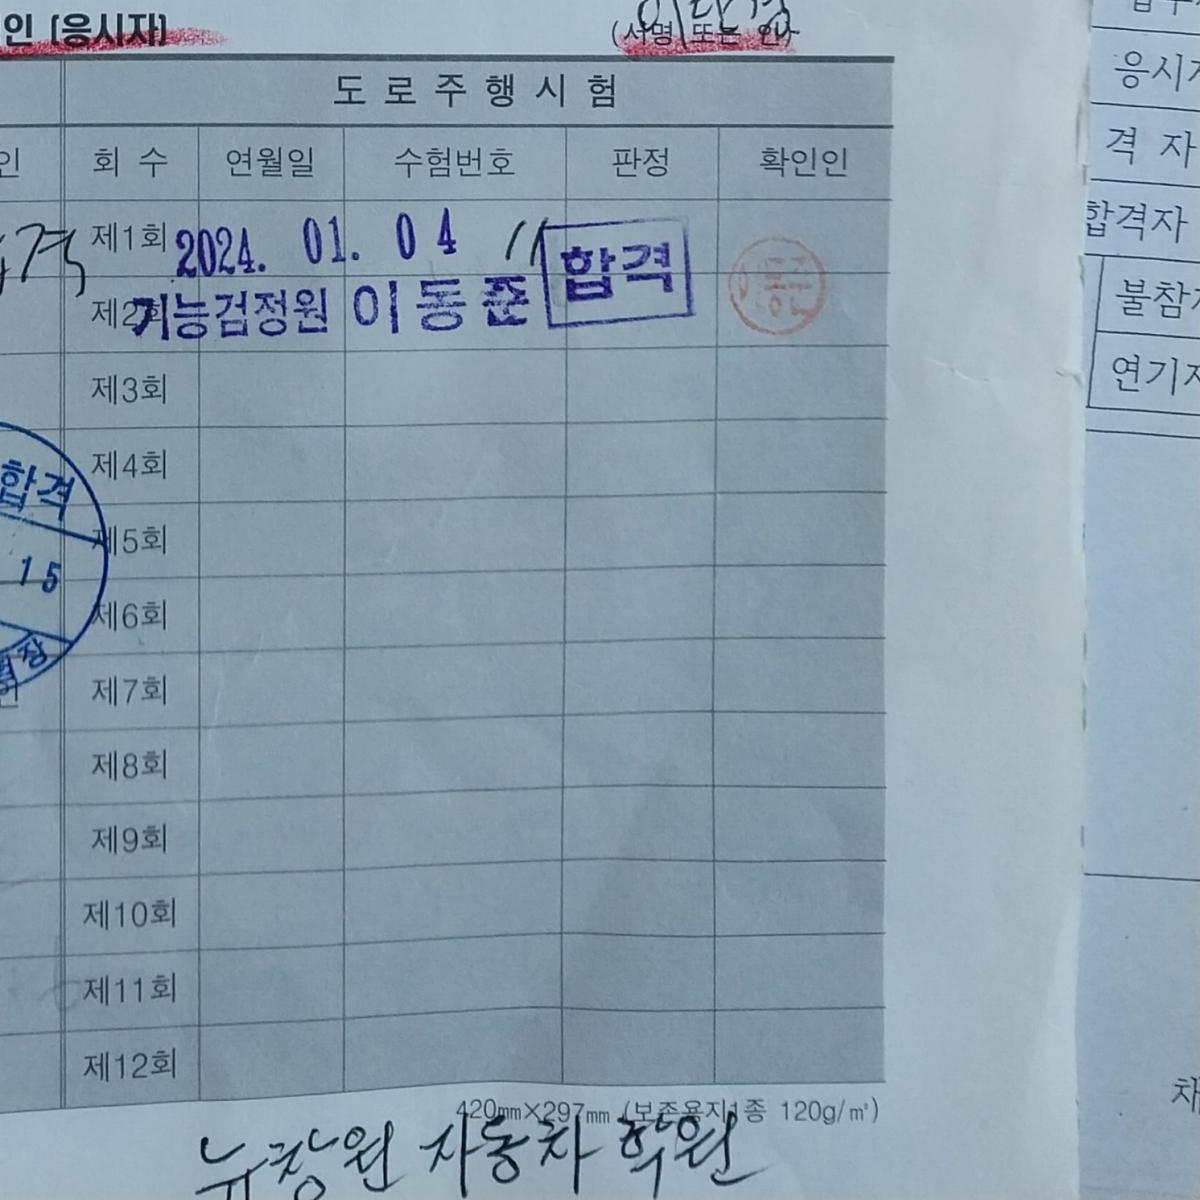 인 (응시자)
(서명 또는 인)
도로주행시험
인 회 수 연월일 수험번호 판정 확인인
제1회 2024. 01. 04 11 합격
제2회 기능검정원 이동준
제3회
제4회
합격
제5회
15
제6회
장
인
제7회
제8회
제9회
제10회
제11회
제12회
420mm×297mm (보존용지1종 120g/㎡)
뉴창원 자동차 학원
응시
격 자
합격자
불참
연기
채